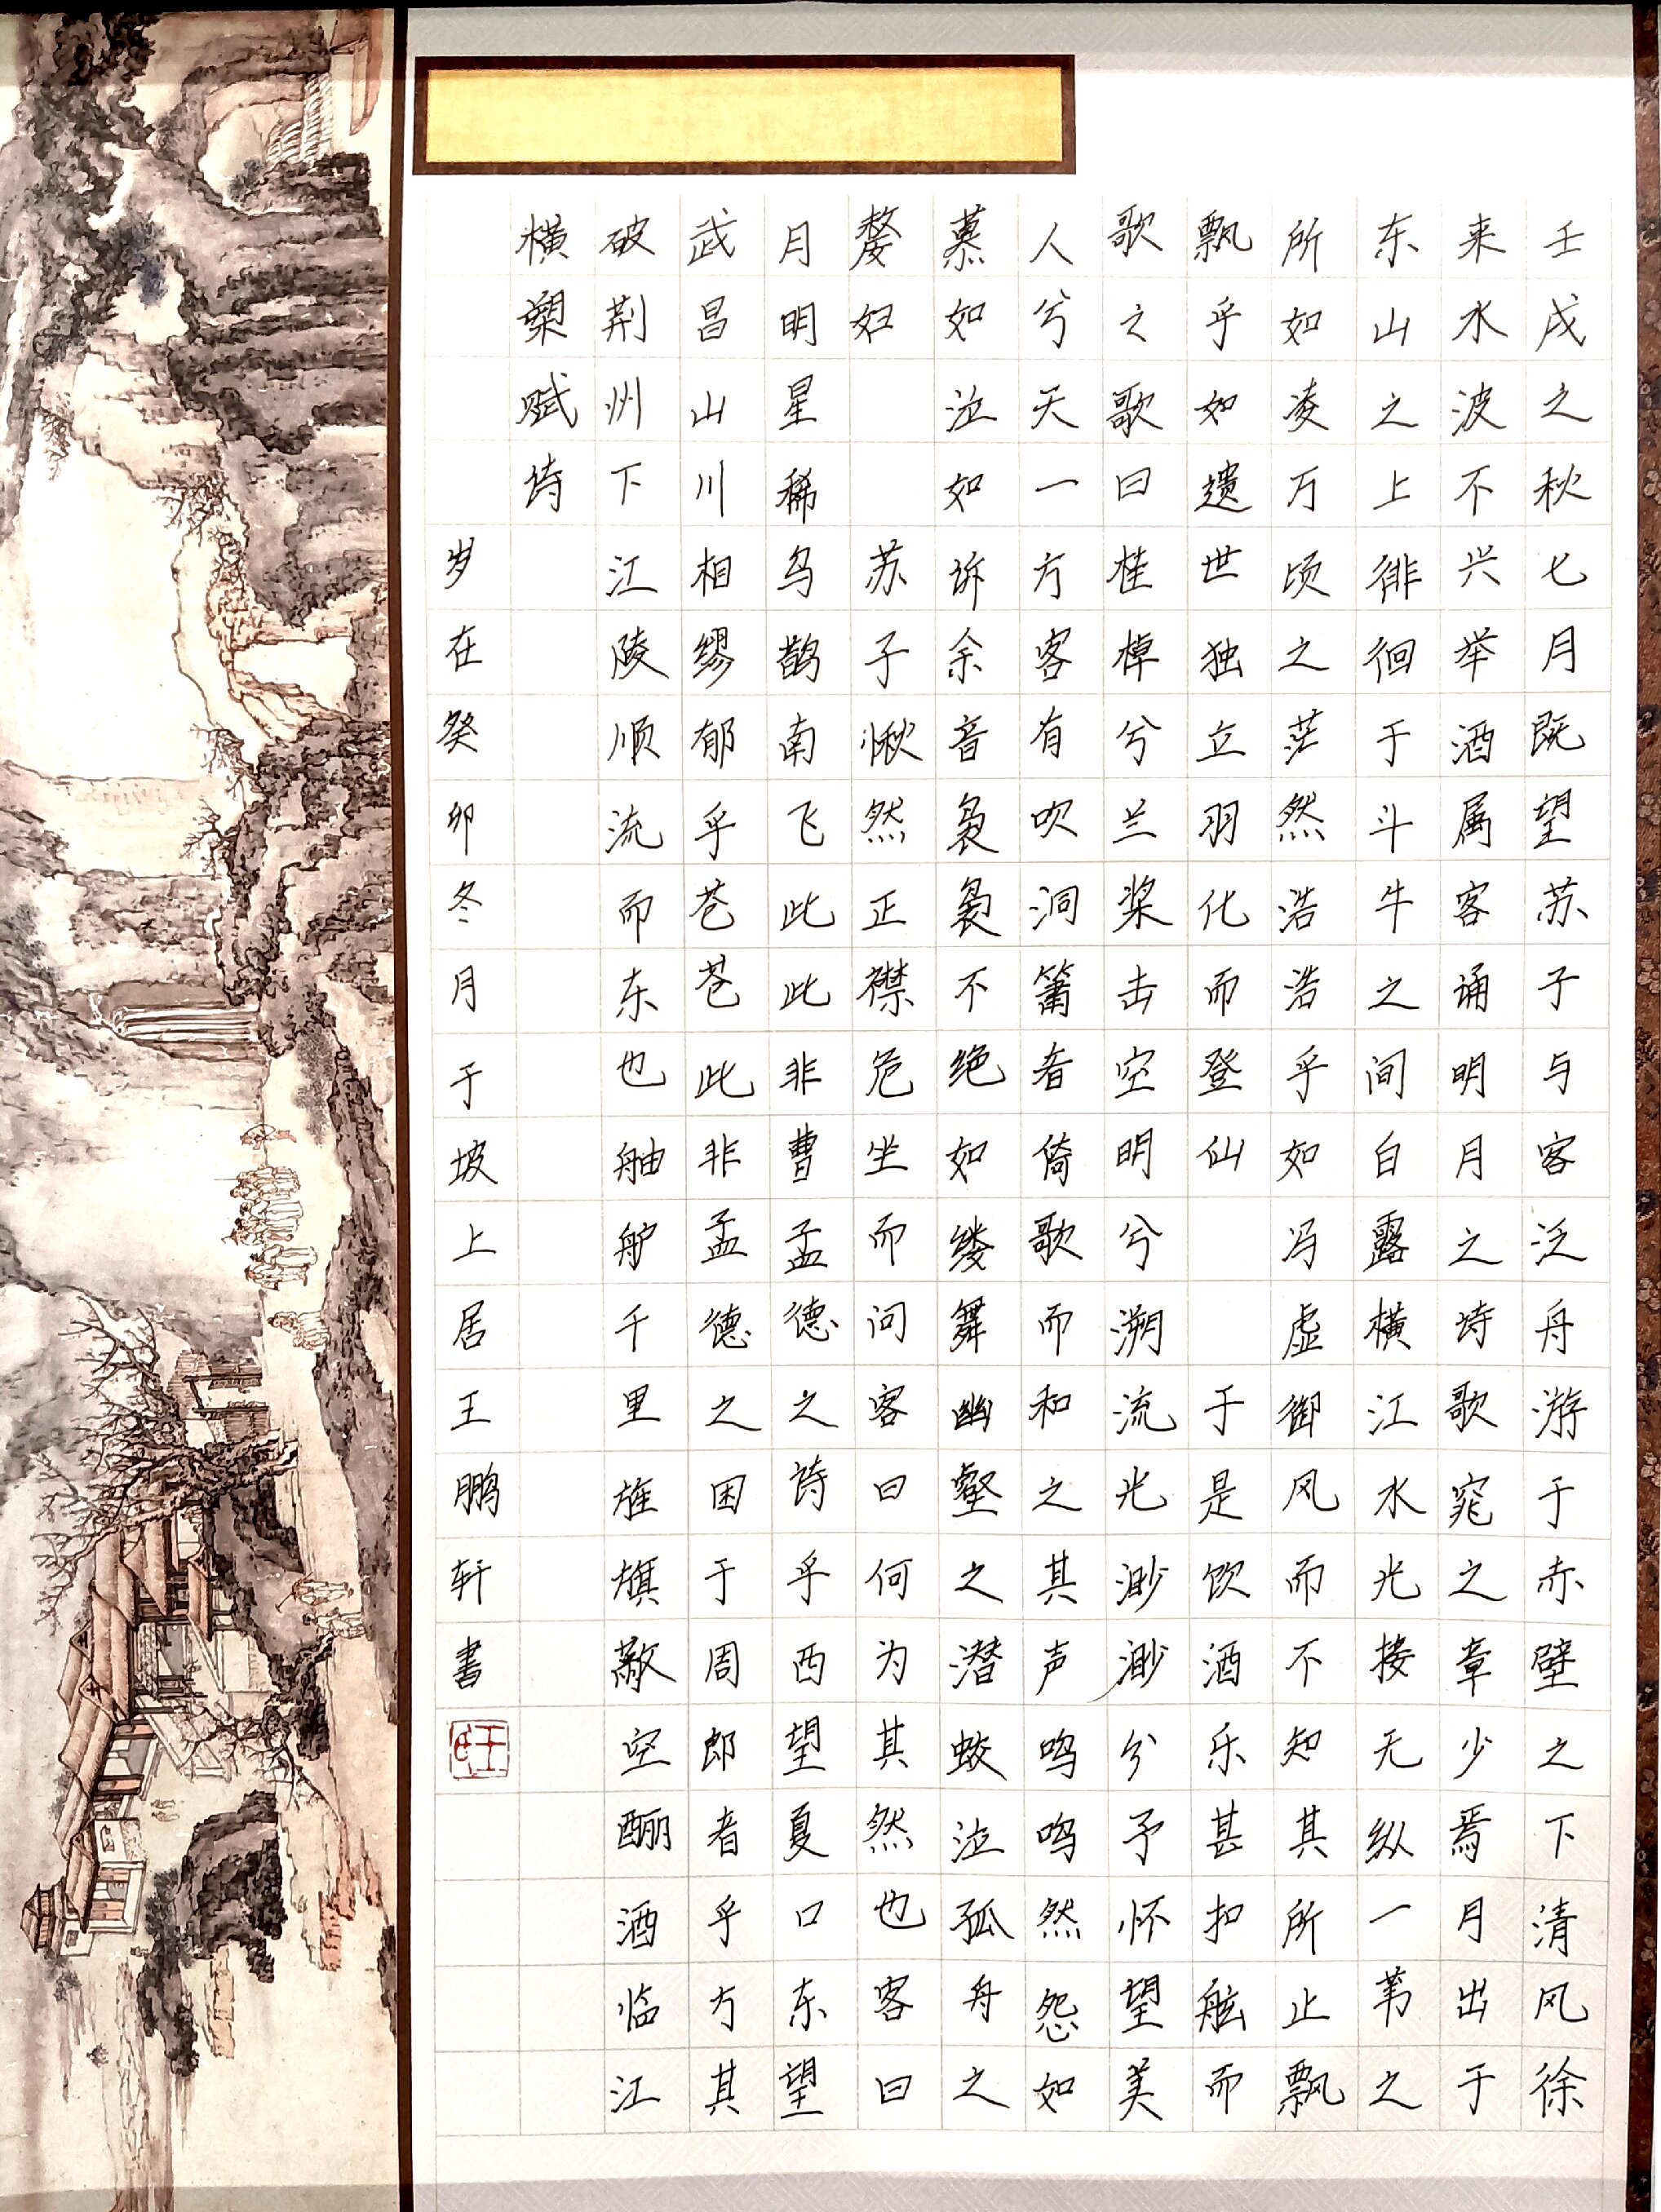 壬戌之秋七月既望苏子与客泛舟游于赤壁之下清风徐
来水波不兴举酒属客诵明月之诗歌窕之章少焉月出于
东山之上徘徊于斗牛之间白露横江水光接天纵一苇之
所如凌万顷之茫然浩浩乎如冯虚御风而不知其所止飘
飘乎如遗世独立羽化而登仙于是饮酒乐甚扣舷而
歌之歌曰桂棹兮兰桨击空明兮溯流光渺渺兮予怀望美
人兮天一方客有吹洞箫者倚歌而和之其声呜呜然怨如
慕如泣如诉余音袅袅不绝如缕舞幽壑之潜蛟泣孤舟之
嫠妇苏子愀然正襟危坐而问客曰何为其然也客曰
月明星稀乌鹊南飞此此非曹孟德之诗乎西望夏口东望
武昌山川相缪郁乎苍苍此非孟德之困于周郎者乎方其
破荆州下江陵顺流而东也舳舻千里旌旗蔽空酾酒临江
横槊赋诗
岁在癸卯冬月于坡上居王鹏轩书